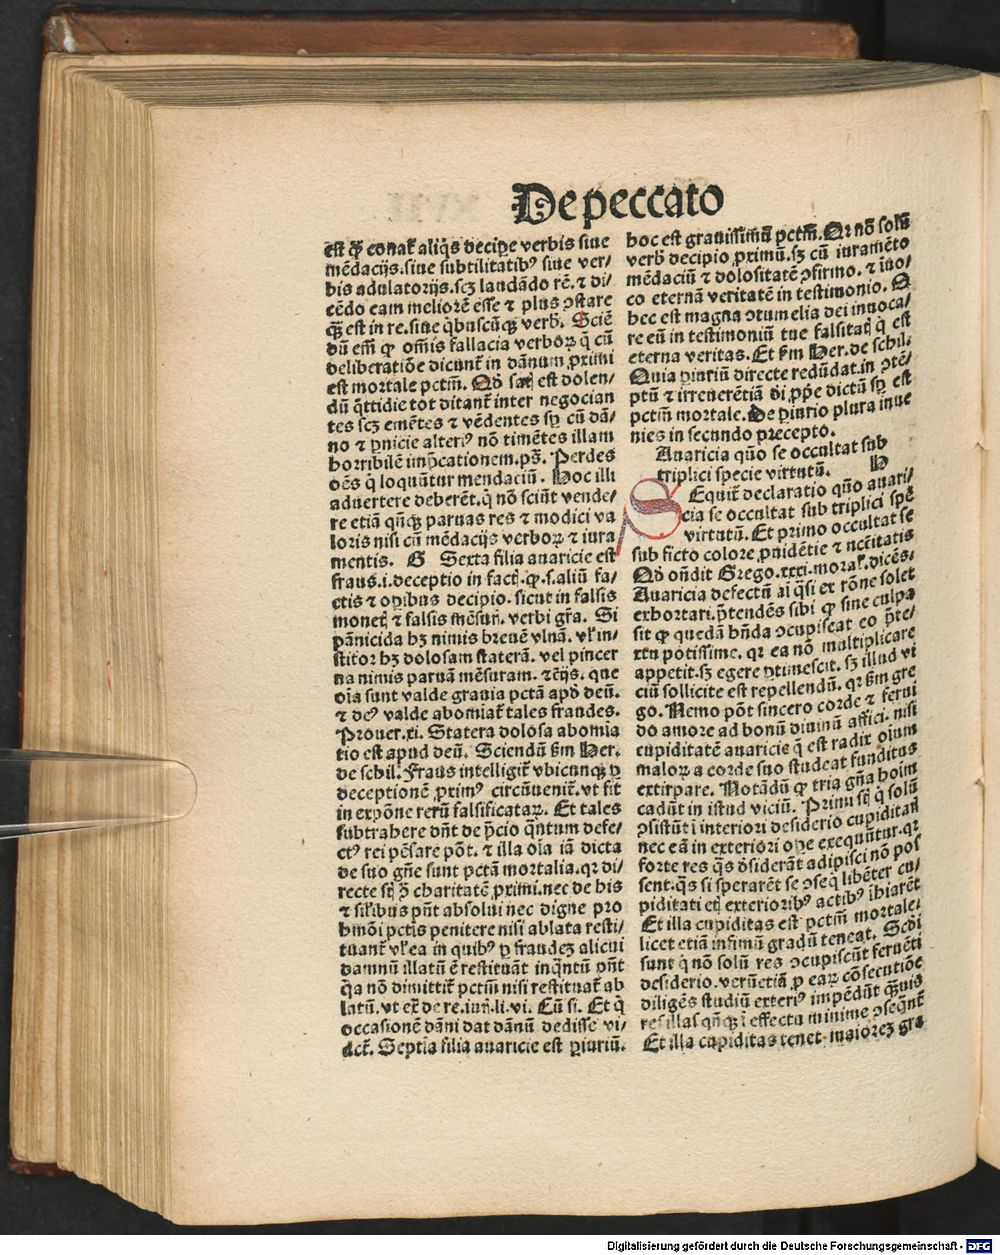 De peccato
est qñ conat᷑ aliq̃s decipe verbis siue
mẽdacijs. siue subtilitatibꝰ siue ver⸗
bis adulatorijs. scꝫ laudãdo rẽ. ⁊ di⸗
cẽdo eam meliorẽ esse ⁊ plus ↄstare
q̃ est in re. siue q̃buscũqꝫ verb̃. Sciẽ
dũ em̃ ꝙ om̃is fallacia verboꝝ q̃ cũ
deliberatiõe dicunt᷑ in dãnum ꝓximi
est mortale pctm̃. est dolen⸗
dũ q̃ttidie tot ditant᷑ inter negocian
tes scꝫ emẽtes ⁊ vẽdentes sꝫ cũ dã⸗
no ⁊ ꝑnicie alteriꝰ nõ timẽtes illam
horribilẽ imp̃cationem. ps̃. Perdes
oẽs q̃ loquũtur mendaciũ. Hoc illi
aduertere deberẽt. q̃ nõ sciũt vende⸗
re etiã qñqꝫ paruas res ⁊ modici va
loris nisi cũ mẽdacijs verboꝝ ⁊ iura
mentis. G Sexta filia auaricie est
fraus. i. deceptio in . ꝙ. s. aliũ fa⸗
ctis ⁊ oꝑibus decipio. sicut in falsis
⁊ falsis mẽsur̃. verbi gr̃a. Si
pãnicida hꝫ nimis breuẽ vlnã. vl̃ in⸗
stitor hꝫ dolosam staterã. vel pincer
na nimis paruã mẽsuram. ⁊c̃ijs. que
oĩa sunt valde grauia pctã apd̕ deũ.
⁊ deꝰ valde abomiat᷑ tales fraudes.
Prouer. xi. Statera dolosa abomia
tio est apud deũ. Sciendũ ẜm Her.
de schil. Fraus intelligit᷑ vbicunqꝫ ꝑ
deceptionẽ ꝓximꝰ circũuenit᷑. vt fit
in expõne rerũ falsificataꝝ. Et tales
subtrahere dñt de p̃cio q̃ntum defe⸗
ctꝰ rei pẽsare põt. ⁊ illa oĩa iã dicta
de suo gñe sunt pctã mortalia. qꝛ di⸗
recte charitatẽ ꝓximi. nec de his
⁊ sil̃ibus pñt absolui nec digne pro
hmõi pctis penitere nisi ablata resti⸗
tuant᷑ vl̃ ea in quibꝰ ꝑ fraudeꝫ alicui
damnũ illatũ ẽ restituãt inq̃ntũ pñt
q̃a nõ dimittit᷑ pctm̃ nisi restituat᷑ ab
latũ. vt ex̃ de re. iur̃. li. vi. Cũ si. Et q̃
occasionẽ dãni dat dãnũ dedisse vi⸗
det᷑. Septĩa filia auaricie est ꝑiuriũ.
hoc est grauissimũ pctm̃. Qꝛ nõ solũ
verb̃ decipio ꝓximũ. sꝫ cũ iuramẽto
mẽdaciũ ⁊ dolositatẽ ↄfirmo. ⁊ ĩuo⸗
co eternã veritatẽ in testimonio. Q̃
hec est magna ↄtumelia dei inuoca⸗
re eũ in testimoniũ tue q̃ est
eterna veritas. Et ẜm Her. de schil.
Quia ꝑiuriũ directe redũdat in ↄtẽ⸗
ptũ ⁊ irreuerẽtiã di ꝓp̃e dictũ sꝑ est
pctm̃ mortale. De ꝑiurio plura inue
nies in secundo precepto.
Auaricia quo se occultat sub
triplici specie virtutũ. H
SEquit᷑ declaratio quo auari⸗
cia se occultat sub triplici spẽ
virtutũ. Et primo occultat se
sub ficto colore ꝓuidẽtie ⁊ nc̃citatis
Qd̕ oñdit Grego. xxxi. moral̃. dicẽs.
Auaricia defectũ ai q̃si ex rõne solet
exhortari. p̃tendẽs sibi ꝙ sine culpa
sit ꝙ quedã hñda ↄcupiscat eo p̃te⸗
xtu potissime. qꝛ ea nõ multiplicare
appetit. sꝫ egere ꝑtimescit. sꝫ illud vi
ciũ sollicite est repellendũ. qꝛ ẜm gre
go. Nemo põt sincero corde ⁊ ferui
do amore ad bonũ diuinũ affici. nisi
cupiditatẽ auaricie q̃ est radix oĩum
maloꝝ a corde suo studeat funditus
extirpare. Notãdũ ꝙ tria gña hoĩm
cadũt in istud viciũ. Primi q̃ solũ
ↄsistũt ĩ interiori desiderio cupiditatĩ
nec eã in exteriori oꝑe exequũtur. qꝛ
forte res q̃s d̕siderãt adipisci nõ pos
sent. q̃s si sperarẽt se ↄseq̃ libẽter cu⸗
piditati exterioribꝰ actibꝰ ĩhiarẽt
Et illa cupiditas est pctm̃ mortale.
licet etiã infimũ gradũ teneat. Scd̕i
sunt q̃ nõ solũ res ↄcupiscũt feruẽti
desiderio. verũetiã ꝓ eaꝝ cõsecutiõe
diligẽs studiũ exteriꝰ impẽdũt q̃uis
res illas qñqꝫ ĩ effectu minime ↄseqñt᷑
Et illa cupiditas tenet maioreꝫ gra
Digitalisierung gefördert durch die Deutsche Forschungsgemeinschaft - DFG